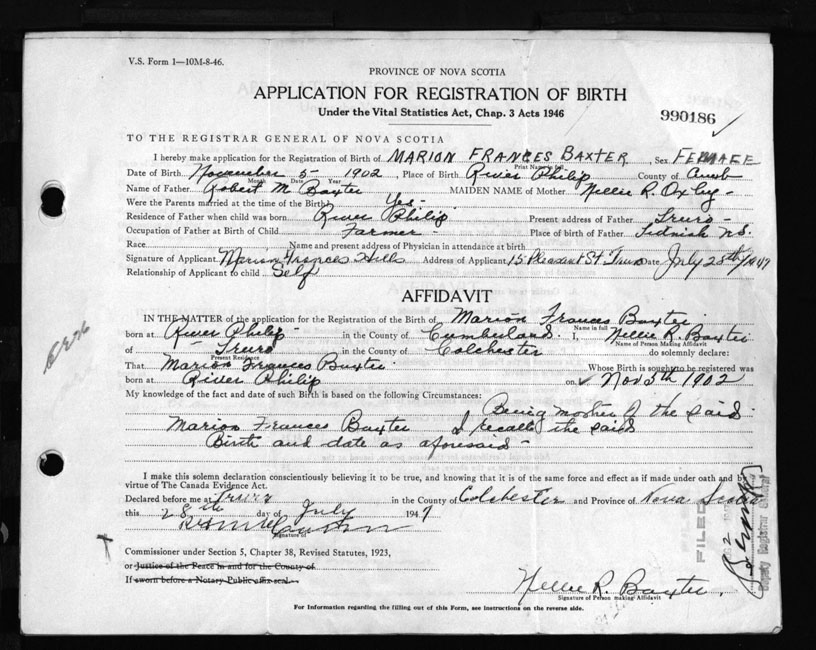 V.S. Form 1—10M-8-46.
PROVINCE OF NOVA SCOTIA
APPLICATION FOR REGISTRATION OF BIRTH
Under the Vital Statistics Act, Chap. 3 Acts 1946
990186
TO THE REGISTRAR GENERAL OF NOVA SCOTIA
I hereby make application for the Registration of Birth of MARION FRANCES BAXTER Sex FEMALE
Print Name in full
Date of Birth November 5 - 1902, Place of Birth River Philip County of Cumb
Month Date Year
Name of Father Robert M Baxter MAIDEN NAME of Mother Nellie R. Oxley -
Were the Parents married at the time of the Birth? Yes -
Residence of Father when child was born River Philip Present address of Father Truro -
Occupation of Father at Birth of Child Farmer - Place of birth of Father Tidnish N.S.
Race Name and present address of Physician in attendance at birth
Signature of Applicant Marion Frances Hills Address of Applicant 15 Pleasant St. Truro Date July 28th/1947
Relationship of Applicant to child Self
AFFIDAVIT
IN THE MATTER of the application for the Registration of Birth of Marion Frances Baxter
Name in full
born at River Philip - in the County of Cumberland. I, Nellie R. Baxter
Name of Person Making Affidavit
of Truro in the County of Colchester do solemnly declare:
Present Residence
That Marion Frances Baxter Whose Birth is sought to be registered was
born at River Philip on Nov 5th 1902
My knowledge of the fact and date of such Birth is based on the following Circumstances:
Being mother of the said
Marion Frances Baxter I recall the said
Birth and date as aforesaid -
I make this solemn declaration conscientiously believing it to be true, and knowing that it is of the same force and effect as if made under oath and by
virtue of The Canada Evidence Act.
Declared before me at Truro in the County of Colchester and Province of Nova Scotia
this 28th day of July 1947
Signature of
Commissioner under Section 5, Chapter 38, Revised Statutes, 1923,
or Justice of the Peace in and for the County of
If sworn before a Notary Public affix seal
Nellie R. Baxter,
Signature of Person making Affidavit
For Information regarding the filling out of this Form, see instructions on the reverse side.
FILED
Deputy Registrar General